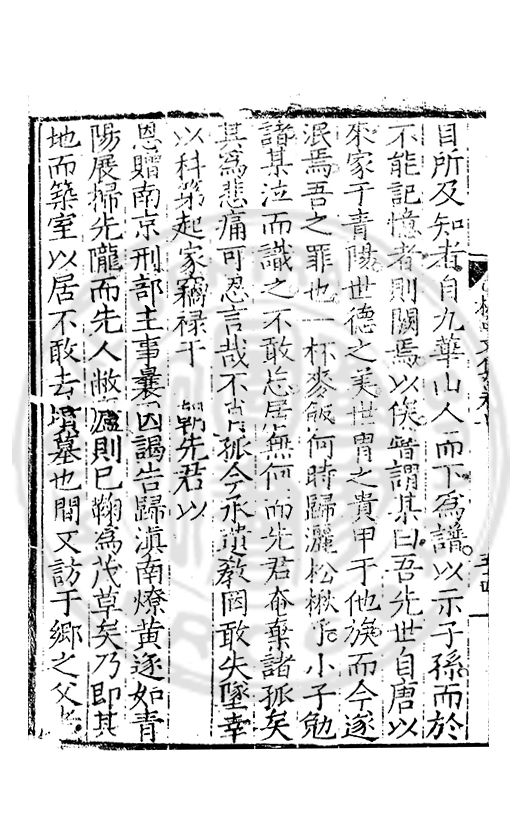 目所及知者自九華山人而下爲譜以示子孫而於
不能記憶者則闕焉以俟嘗謂某曰吾先世自唐以
來家于青陽世德之美世胄之貴甲于他族而今遂
泯焉吾之罪也一杯麥飯何時歸灑松楸乎小子勉
諸某泣而識之不敢忘居無何而先君奄棄諸孤矣
其爲悲痛可忍言哉不肖孤今承遺教罔敢失墜幸
以科第起家竊祿于 朝先君以
恩贈南京刑部主事曩因謁告歸滇南燎黃遂如青
陽展掃先隴而先人敝廬則已鞠爲茂草矣乃即其
地而築室以居不敢去墳墓也間又訪于鄉之父老